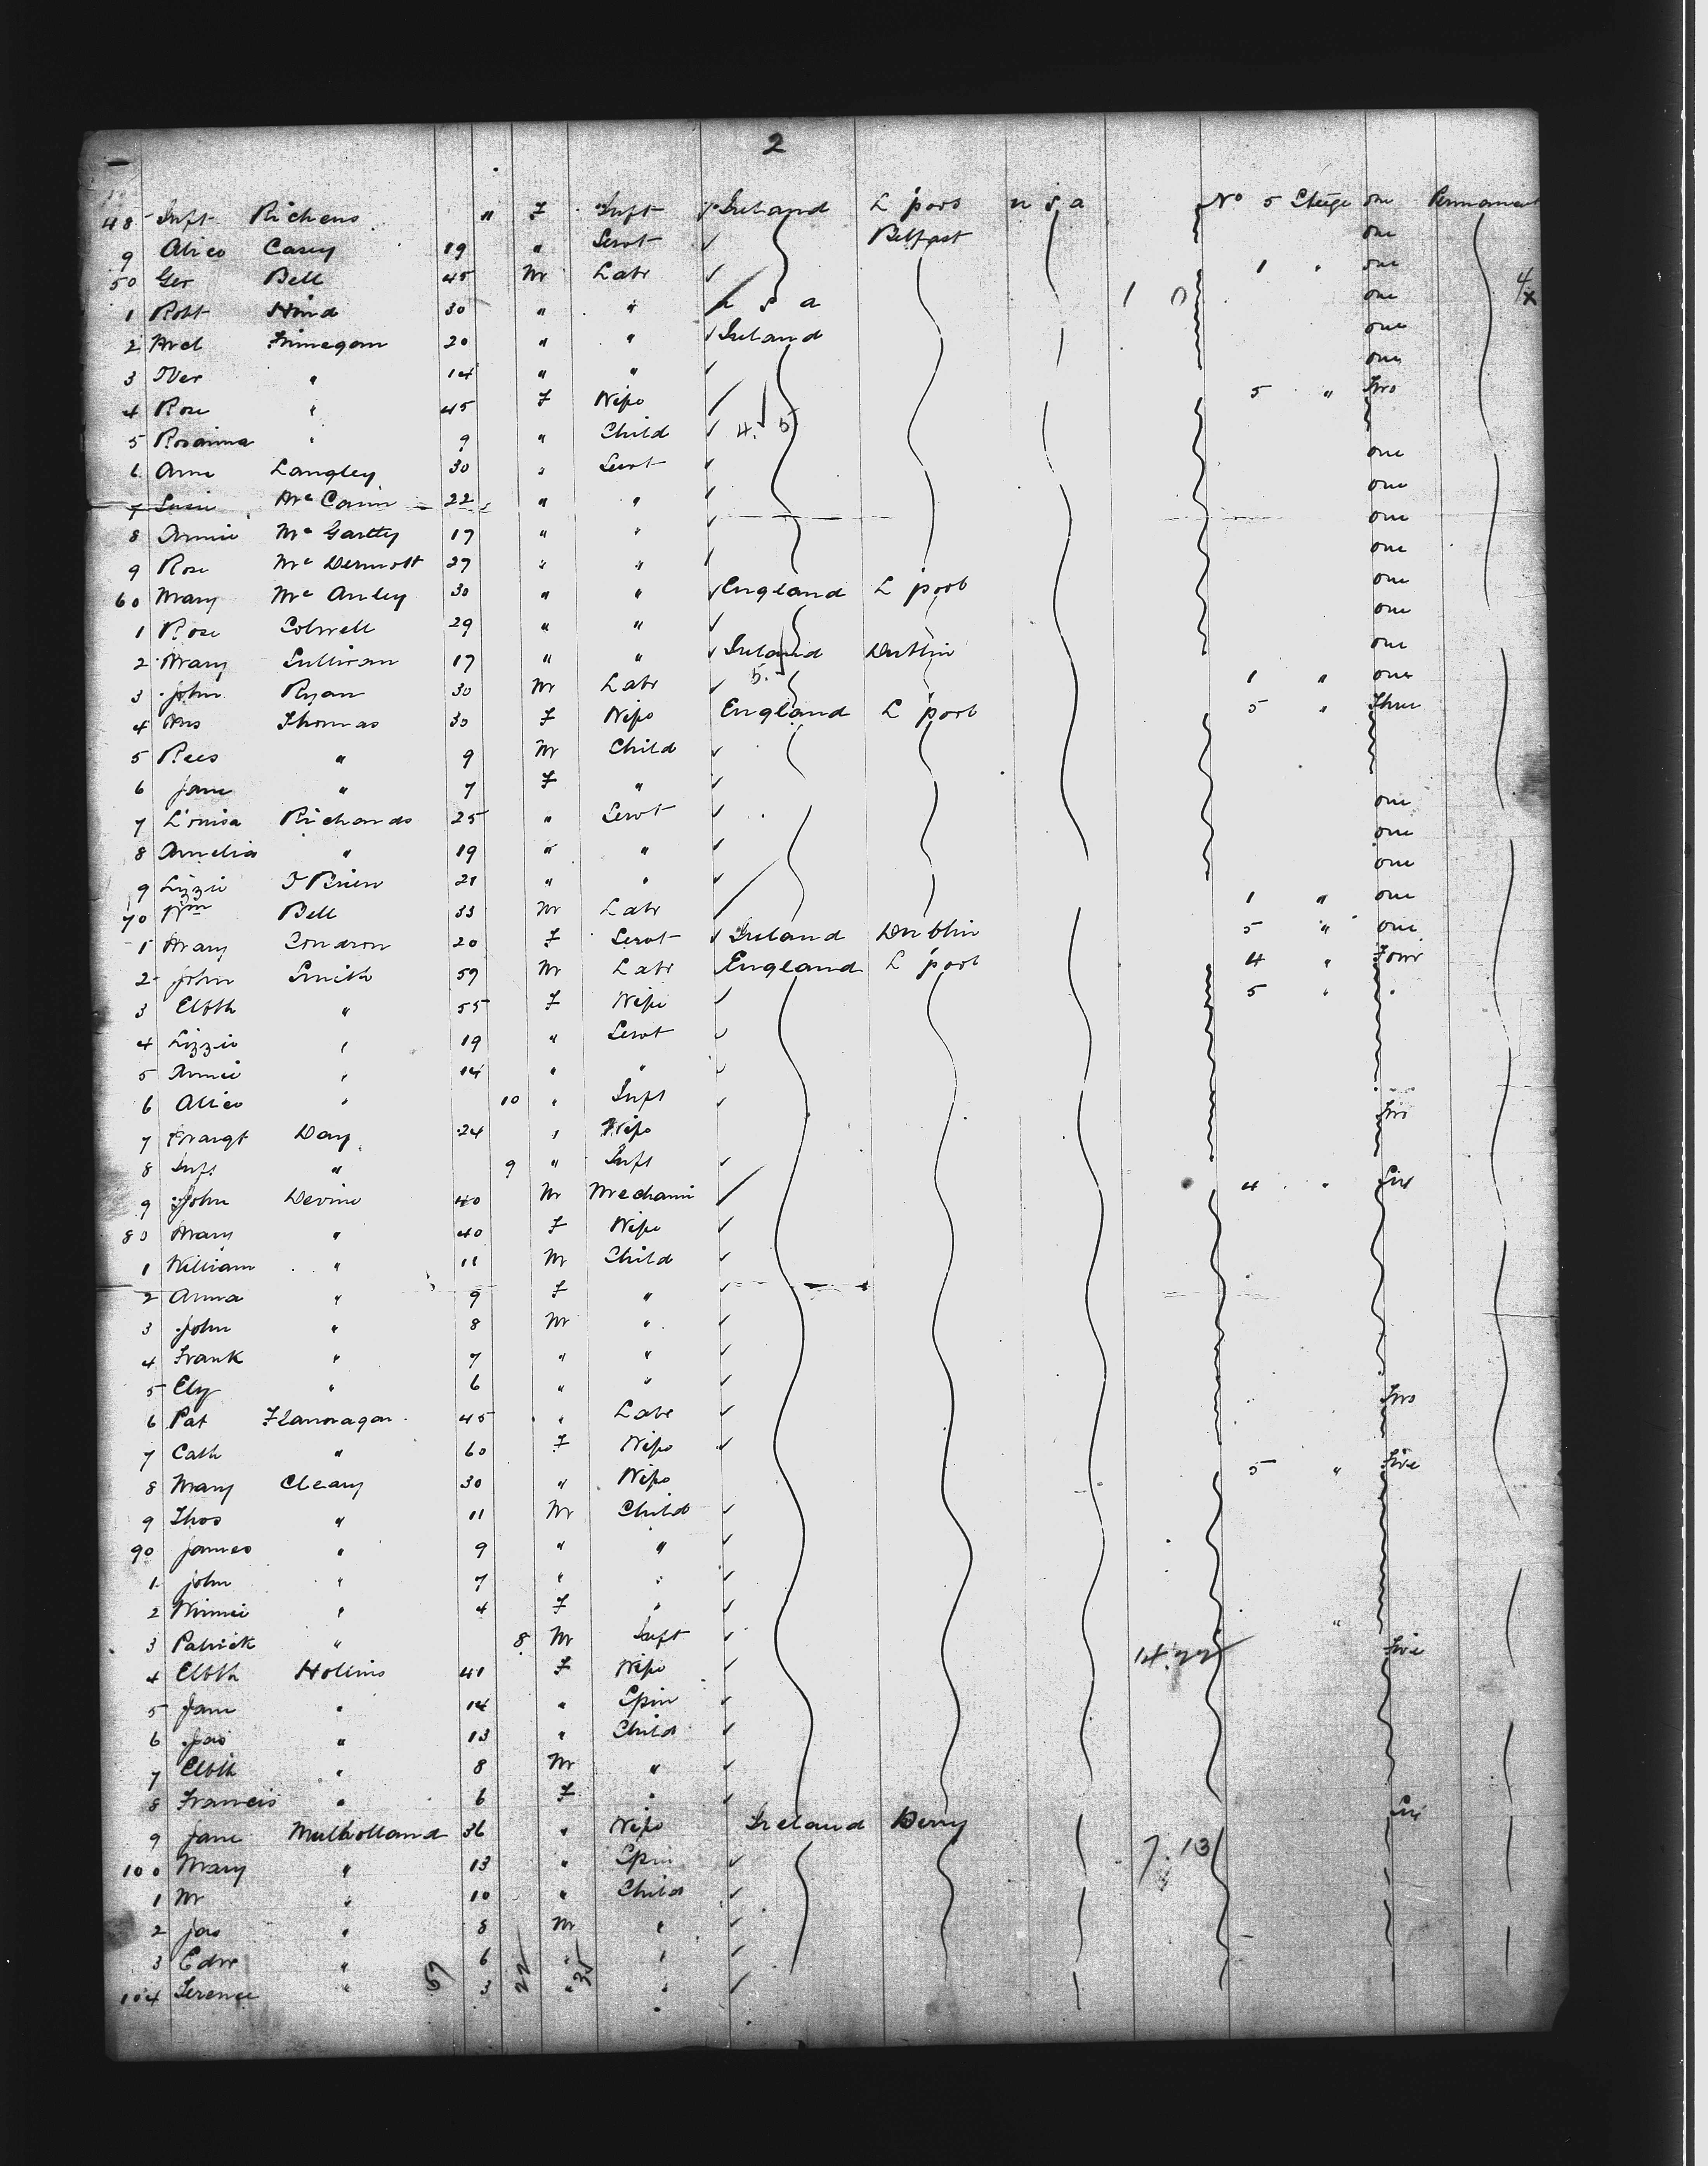 2
48 Inft Richens " F Inft Ireland L'pool U S A No 5 Stege one Permanent
9 Alice Casey 19 " Servt Belfast one
50 Geo Bell 45 M Labr 1 " one
1 Robt Hind 30 " " U S A one
2 Finnegan 20 " " Ireland one
3 " 14 " " one
4 Rose " 45 F Wife 5 " Two
5 Rosanna " 9 " Child
6 Ann Langley 30 " Servt one
7 Susie 22 " " one
8 Annie Mc Gartty 19 " " one
9 Rose Mc Dermott 27 " " one
60 Mary Mc Anley 30 " " England L'pool one
1 Rose Colwell 29 " " one
2 Mary Sullivan 17 " " Ireland Dublin one
3 John Ryan 30 M Labr 1 " one
4 Mrs Thomas 30 F Wife England L'pool 5 " Three
5 Rees " 9 M Child
6 Jane " 7 F "
7 Louisa Richards 25 " Servt one
8 Amelia " 19 " " one
9 Lizzie O Brien 21 " " one
70 Wm Bell 33 M Labr 1 " one
1 Mary Condron 20 F Servt Ireland Dublin 5 " one
2 John Smith 59 M Labr England L'pool 4 " Four
3 Elbth " 55 F Wife 5 " "
4 Lizzie " 19 " Servt
5 Annie " 14 " "
6 Alice " 10 " Inft
7 Margt Day 24 " Wife Two
8 Inft " 9 " Inft
9 John Devine 40 M Mechani 4 " Six
80 Mary " 40 F Wife
1 William " 11 M Child
2 Anna " 9 F "
3 John " 8 M "
4 Frank " 7 " "
5 Ely " 6 " "
6 Pat Flannagan 45 " Labr Two
7 Cath " 60 F Wife
8 Mary Cleary 30 " Wife 5 " Five
9 Thos " 11 M Child
90 James " 9 " "
1 John " 7 " "
2 Winnie " 4 F "
3 Patrick " 8 M Inft "
4 Elbth Hollins 41 F Wife Five
5 Jane " 14 " Spin
6 Jas " 13 " Child
7 Elbth " 8 M "
8 Francis " 6 F "
9 Jane Mulholland 36 " Wife Ireland Derry Six
100 Mary " 13 " Spin 7.13
1 M " 10 " Child
2 Jas " 8 M "
3 Edw " 6 " "
104 Terence " 3 " "
22 35